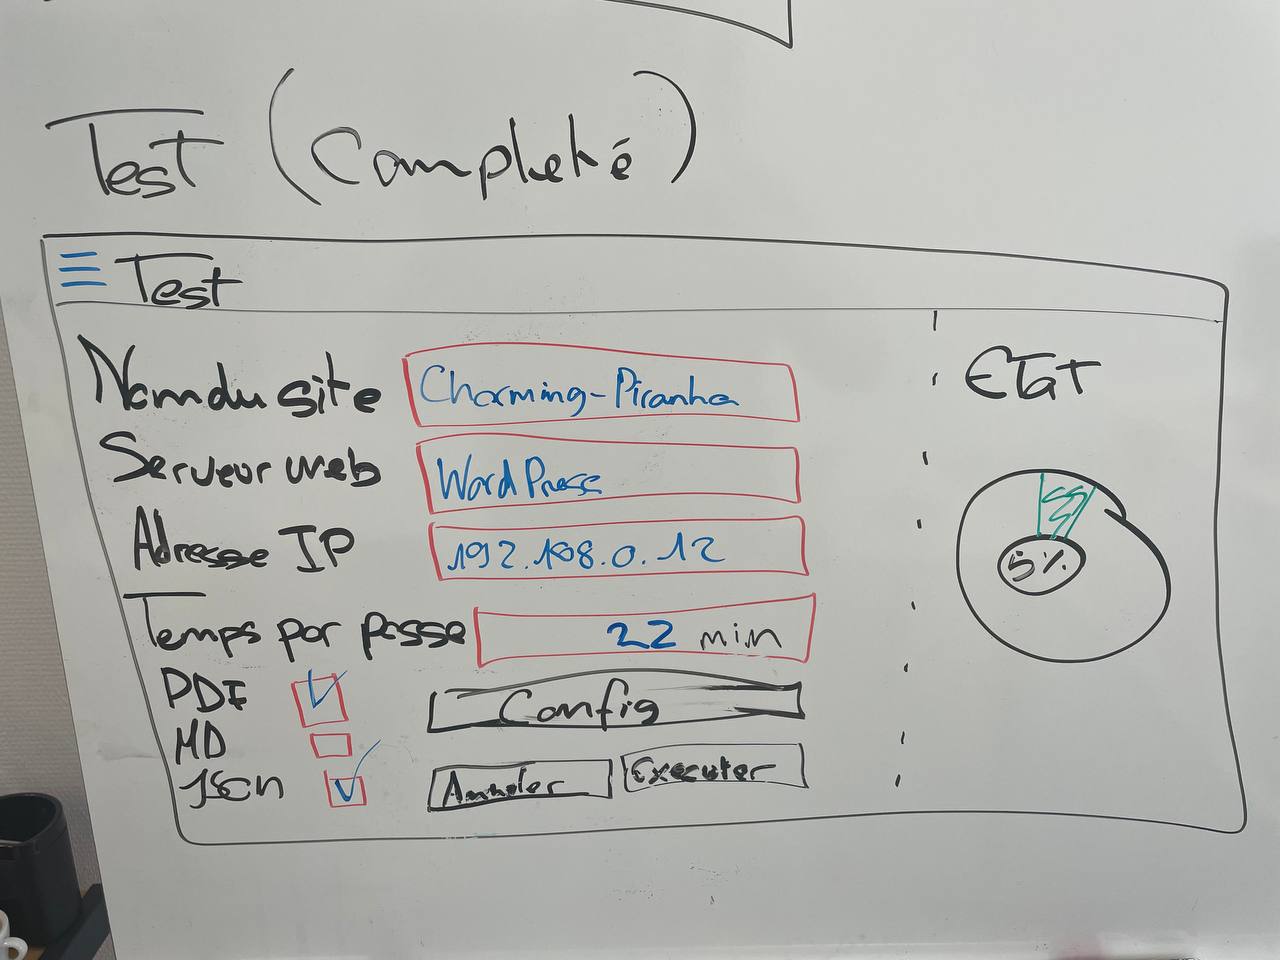 Test (Completé)
Test
Nom du site Charming-Piranha
Serveur web WordPress
Adresse IP 192.168.0.12
Temps par passe 22 min
PDF
MD
JSON
Config
Annuler Executer
ETAT
5%